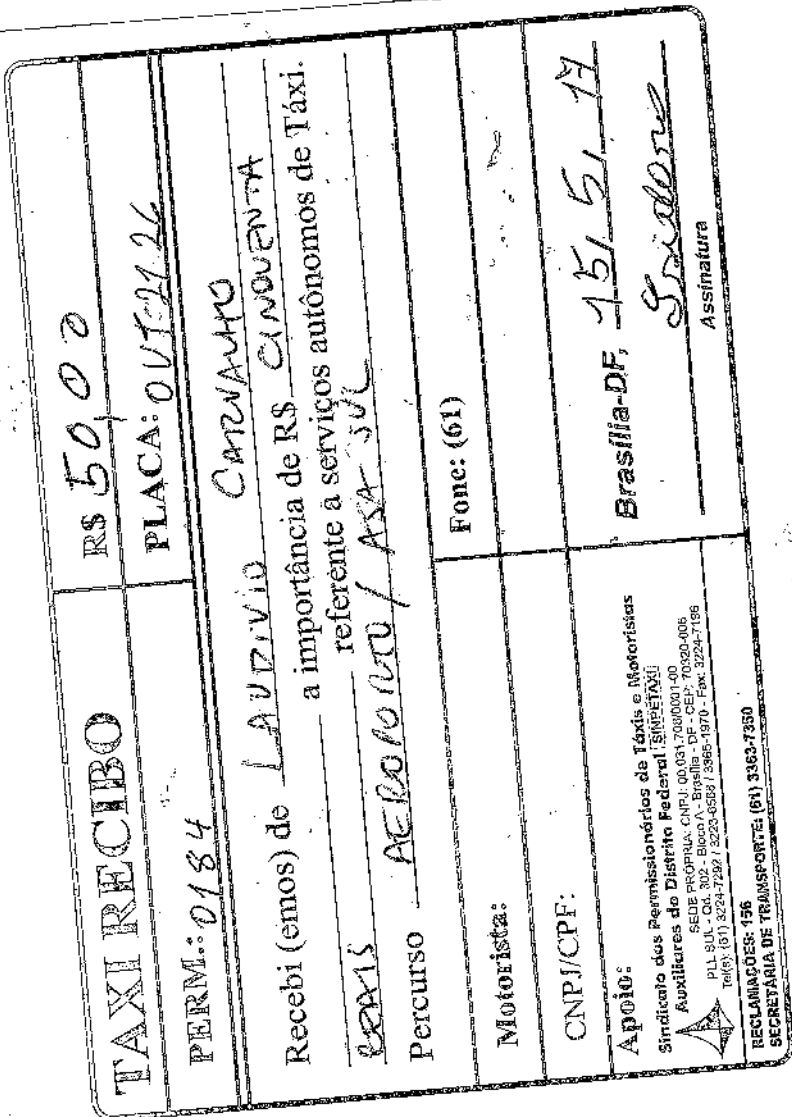 TAXI RECIBO
R$ 50,00
PERM.: 0184
PLACA: OVT-2126
Recebi (emos) de LAUDIVIO CARVALHO
a importância de R$ CINQUENTA
REAIS referente a serviços autônomos de Táxi.
Percurso AEROPORTO / ASA-SUL
Fone: (61)
Motorista:
CNPJ/CPF:
Apoio:
Sindicato dos Permissionários de Táxis e Motoristas
Auxiliares do Distrito Federal [SINPETAXI]
SEDE PRÓPRIA: CNPJ: 00.031.708/0001-00
PLL SUL - Qd. 302 - Bloco A - Brasília - DF - CEP: 70320-006
Tel(s): (61) 3224-7292 / 3223-0568 / 3365-1970 - Fax: 3224-7196
Brasília-DF, 15/5/17
Assinatura
RECLAMAÇÕES: 156
SECRETARIA DE TRANSPORTE: (61) 3363-7350